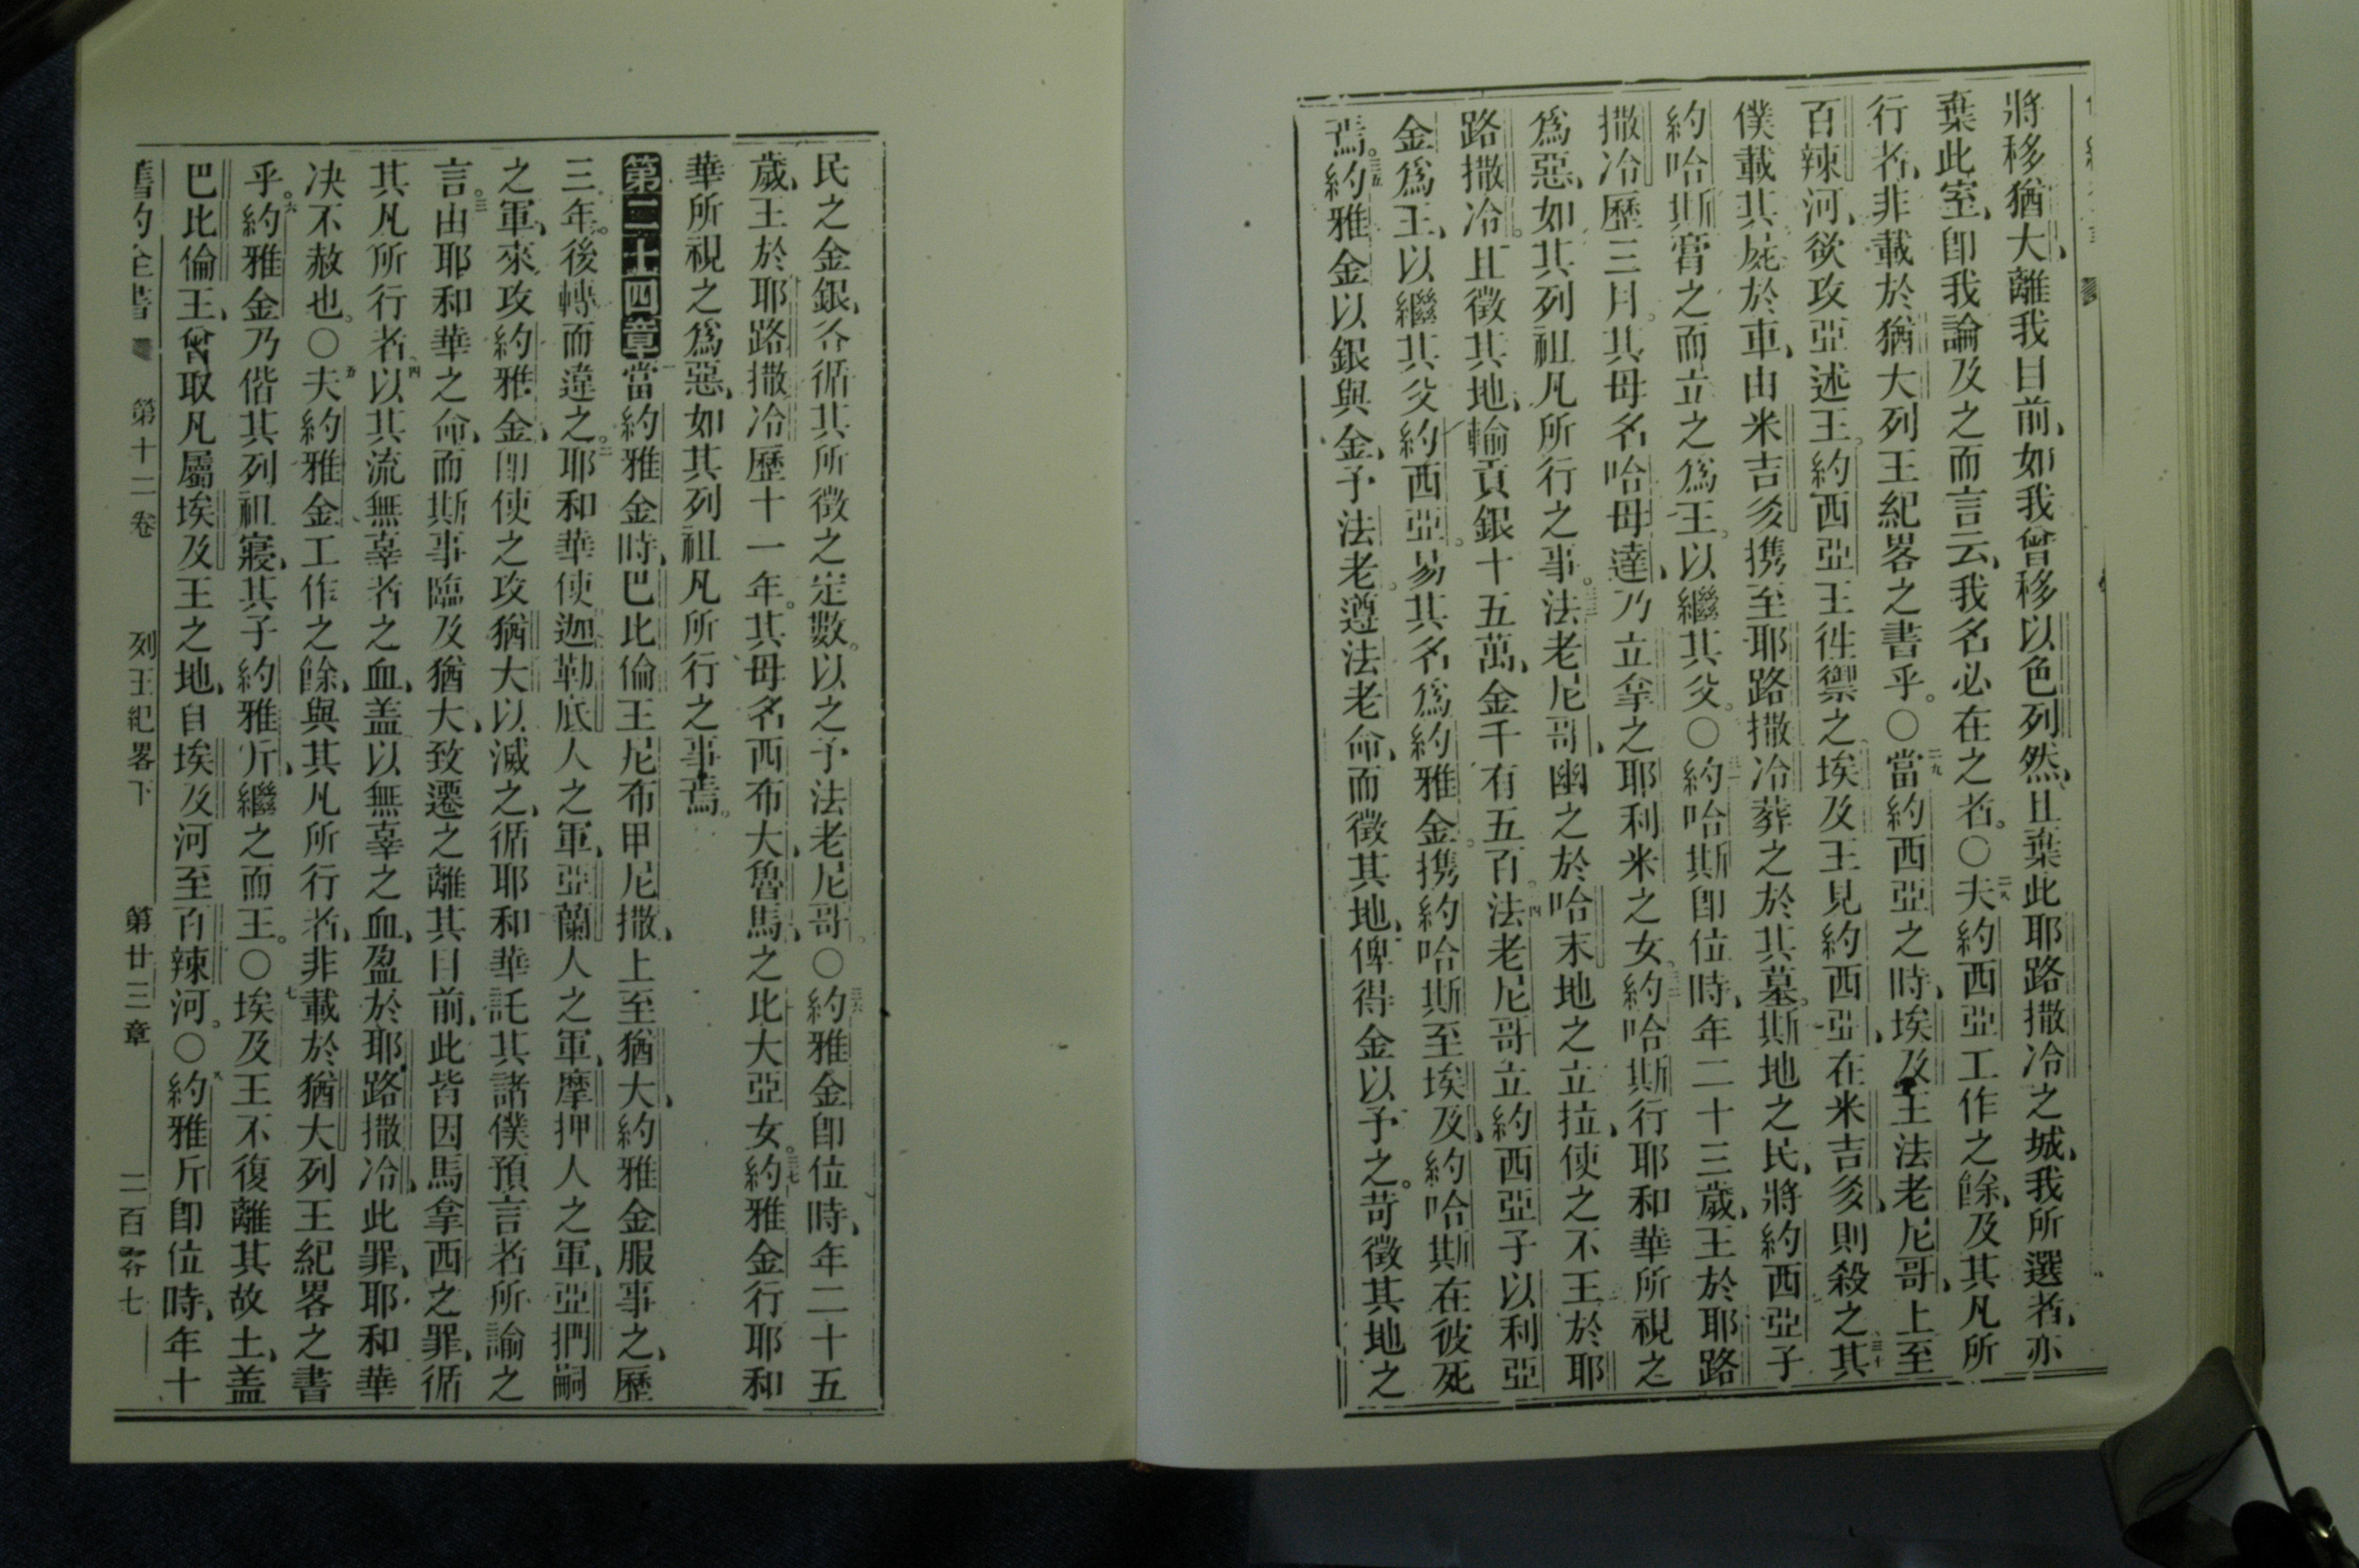 將移猶大離我目前、如我曾移以色列然、且棄此耶路撒冷之城、我所選者、亦
棄此室、卽我論及之而言云、我名必在之者。○二八夫約西亞工作之餘、及其凡所
行者、非載於猶大列王紀畧之書乎。○二九當約西亞之時、埃及王法老尼哥、上至
百辣河、欲攻亞述王。約西亞王徃禦之、埃及王見約西亞、在米吉多、則殺之、三十其
僕載其屍於車、由米吉多携至耶路撒冷、葬之於其墓。斯地之民、將約西亞子
約哈斯膏之而立之爲王。以繼其父。○三一約哈斯卽位時、年二十三歲、王於耶路
撒冷歷三月。其母名哈母達、乃立拿之耶利米之女。三二約哈斯行耶和華所視之
爲惡、如其列祖凡所行之事。三三法老尼哥、幽之於哈末地之立拉、使之不王於耶
路撒冷。且徵其地、輸貢銀十五萬、金千有五百。三四法老尼哥立約西亞子以利亞
金爲王、以繼其父約西亞。易其名爲約雅金。携約哈斯至埃及、約哈斯在彼死
焉。三五約雅金以銀與金、予法老。遵法老命、而徵其地、俾得金以予之。苛徵其地之
民之金銀、各循其所徵之定數。以之予法老尼哥。○三六約雅金卽位時、年二十五
歲、王於耶路撒冷歷十一年。其母名西布大、魯馬、之比大亞女。三七約雅金行耶和
華所視之爲惡、如其列祖凡所行之事焉。
第二十四章一當約雅金時、巴比倫王尼布甲尼撒、上至猶大、約雅金服事之、歷
三年。後轉而違之。二耶和華使迦勒底人之軍、亞蘭人之軍、摩押人之軍、亞捫嗣
之軍、來攻約雅金、卽使之攻猶大以滅之、循耶和華託其諸僕預言者所諭之
言。三由耶和華之命、而斯事臨及猶大、致遷之離其目前、此皆因馬拿西之罪、循
其凡所行者、四以其流無辜者之血、盖以無辜之血、盈於耶路撒冷、此罪、耶和華
决不赦也。○五夫約雅金工作之餘、與其凡所行者、非載於猶大列王紀畧之書
乎。六約雅金乃偕其列祖寢、其子約雅斤、繼之而王。○七埃及王不復離其故土、盖
巴比倫王、曾取凡屬埃及王之地、自埃及河至百辣河。○八約雅斤卽位時、年十
舊約全書 第十二卷 列王紀畧下 第廿三章 二百零七